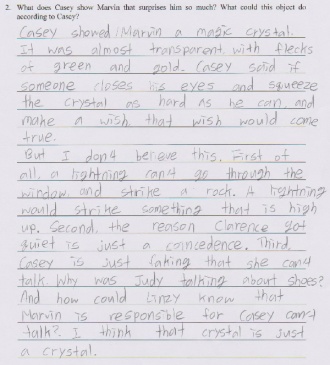 2. What does Casey show Marvin that surprises him so much? What could this object do
according to Casey?
Casey showed Marvin a magic crystal.
It was almost transparent with flecks
of green and gold. Casey said if
someone closes his eyes and squeeze
the crystal as hard as he can, and
make a wish that wish would come
true.
But I don4 beleave this. First of
all, a lightning can4 go through the
window and strike a rock. A lightning
would strike something that is high
up. Second, the reason Clarence got
quiet is just a coincedence. Third
Casey is just faking that she can4
talk. Why was Judy talking about shoes?
And how could Linzy know that
Marvin is responsible for Casey can4
talk? I think that crystal is just
a crystal.